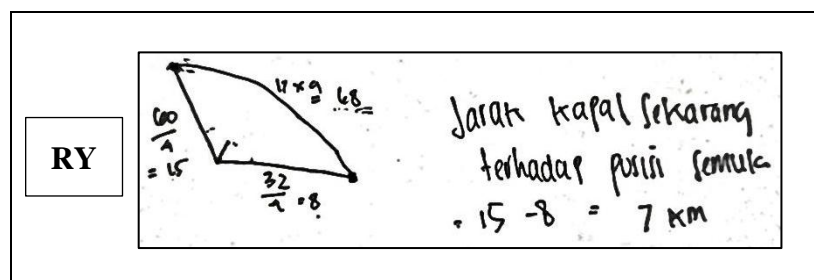 RY
60
4
= 15
17 x 4
= 68
32
4 = 8
Jarak kapal sekarang
terhadap posisi semula
= 15 - 8 = 7 km